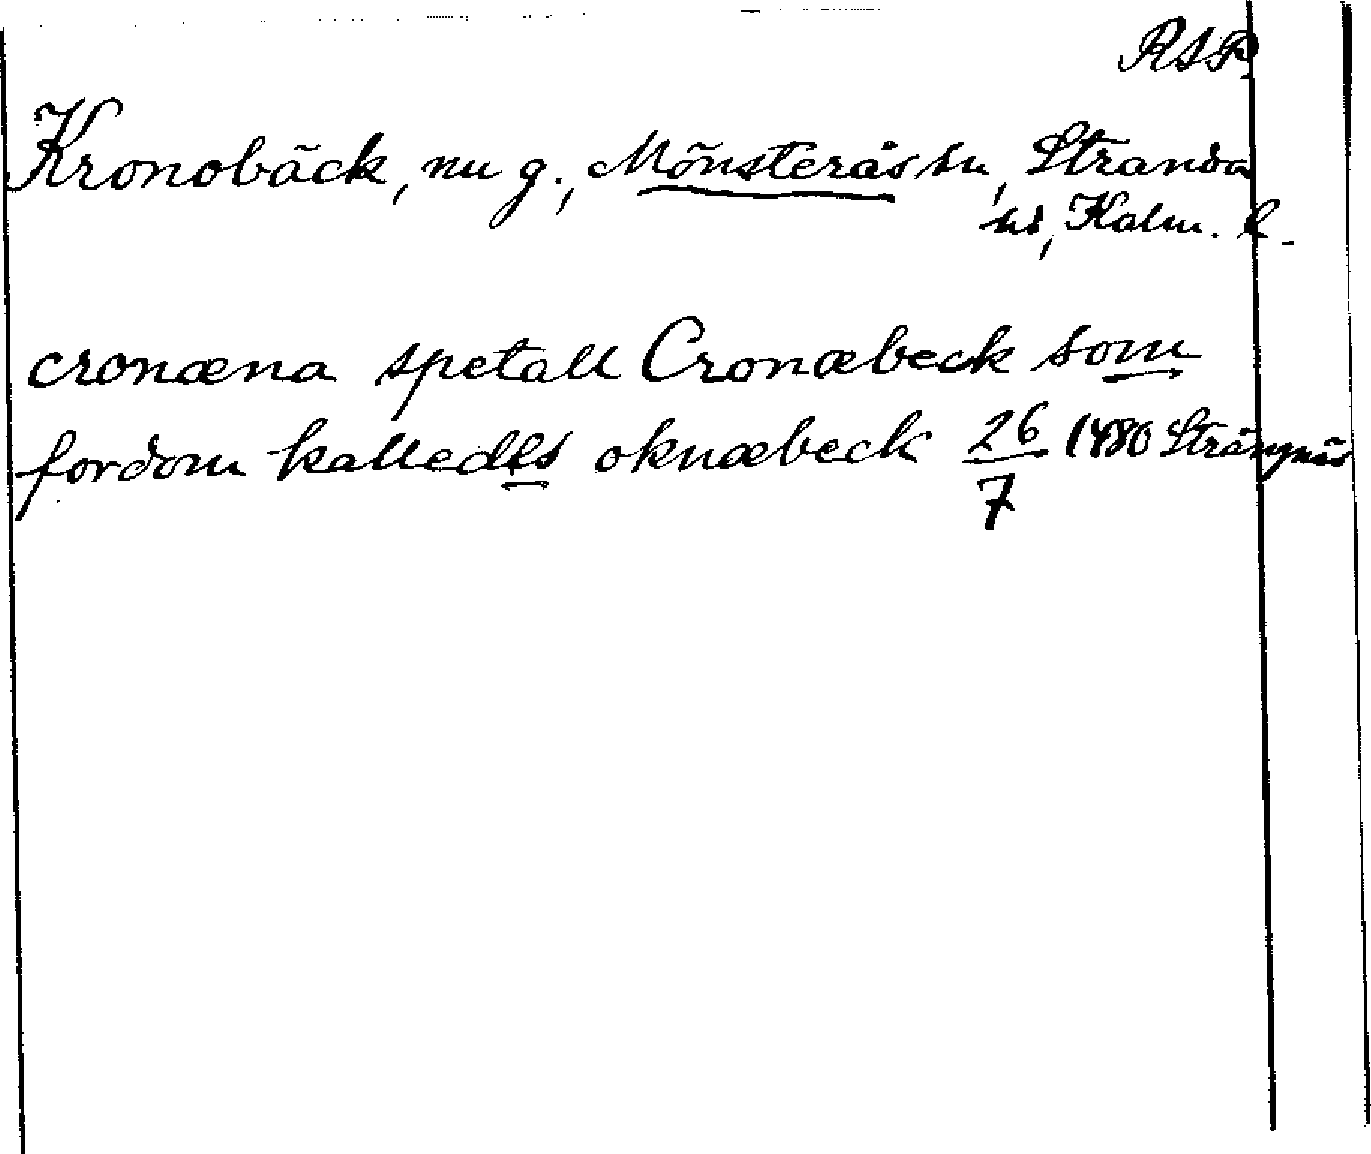 RAP
Kronobäck, nu g., Mönsterås sn, Stranda
hd, Kalm. l.
cronæna spetall Cronæbeck som
fordom kalledes oknæbeck 26/7 1480 Strängnäs